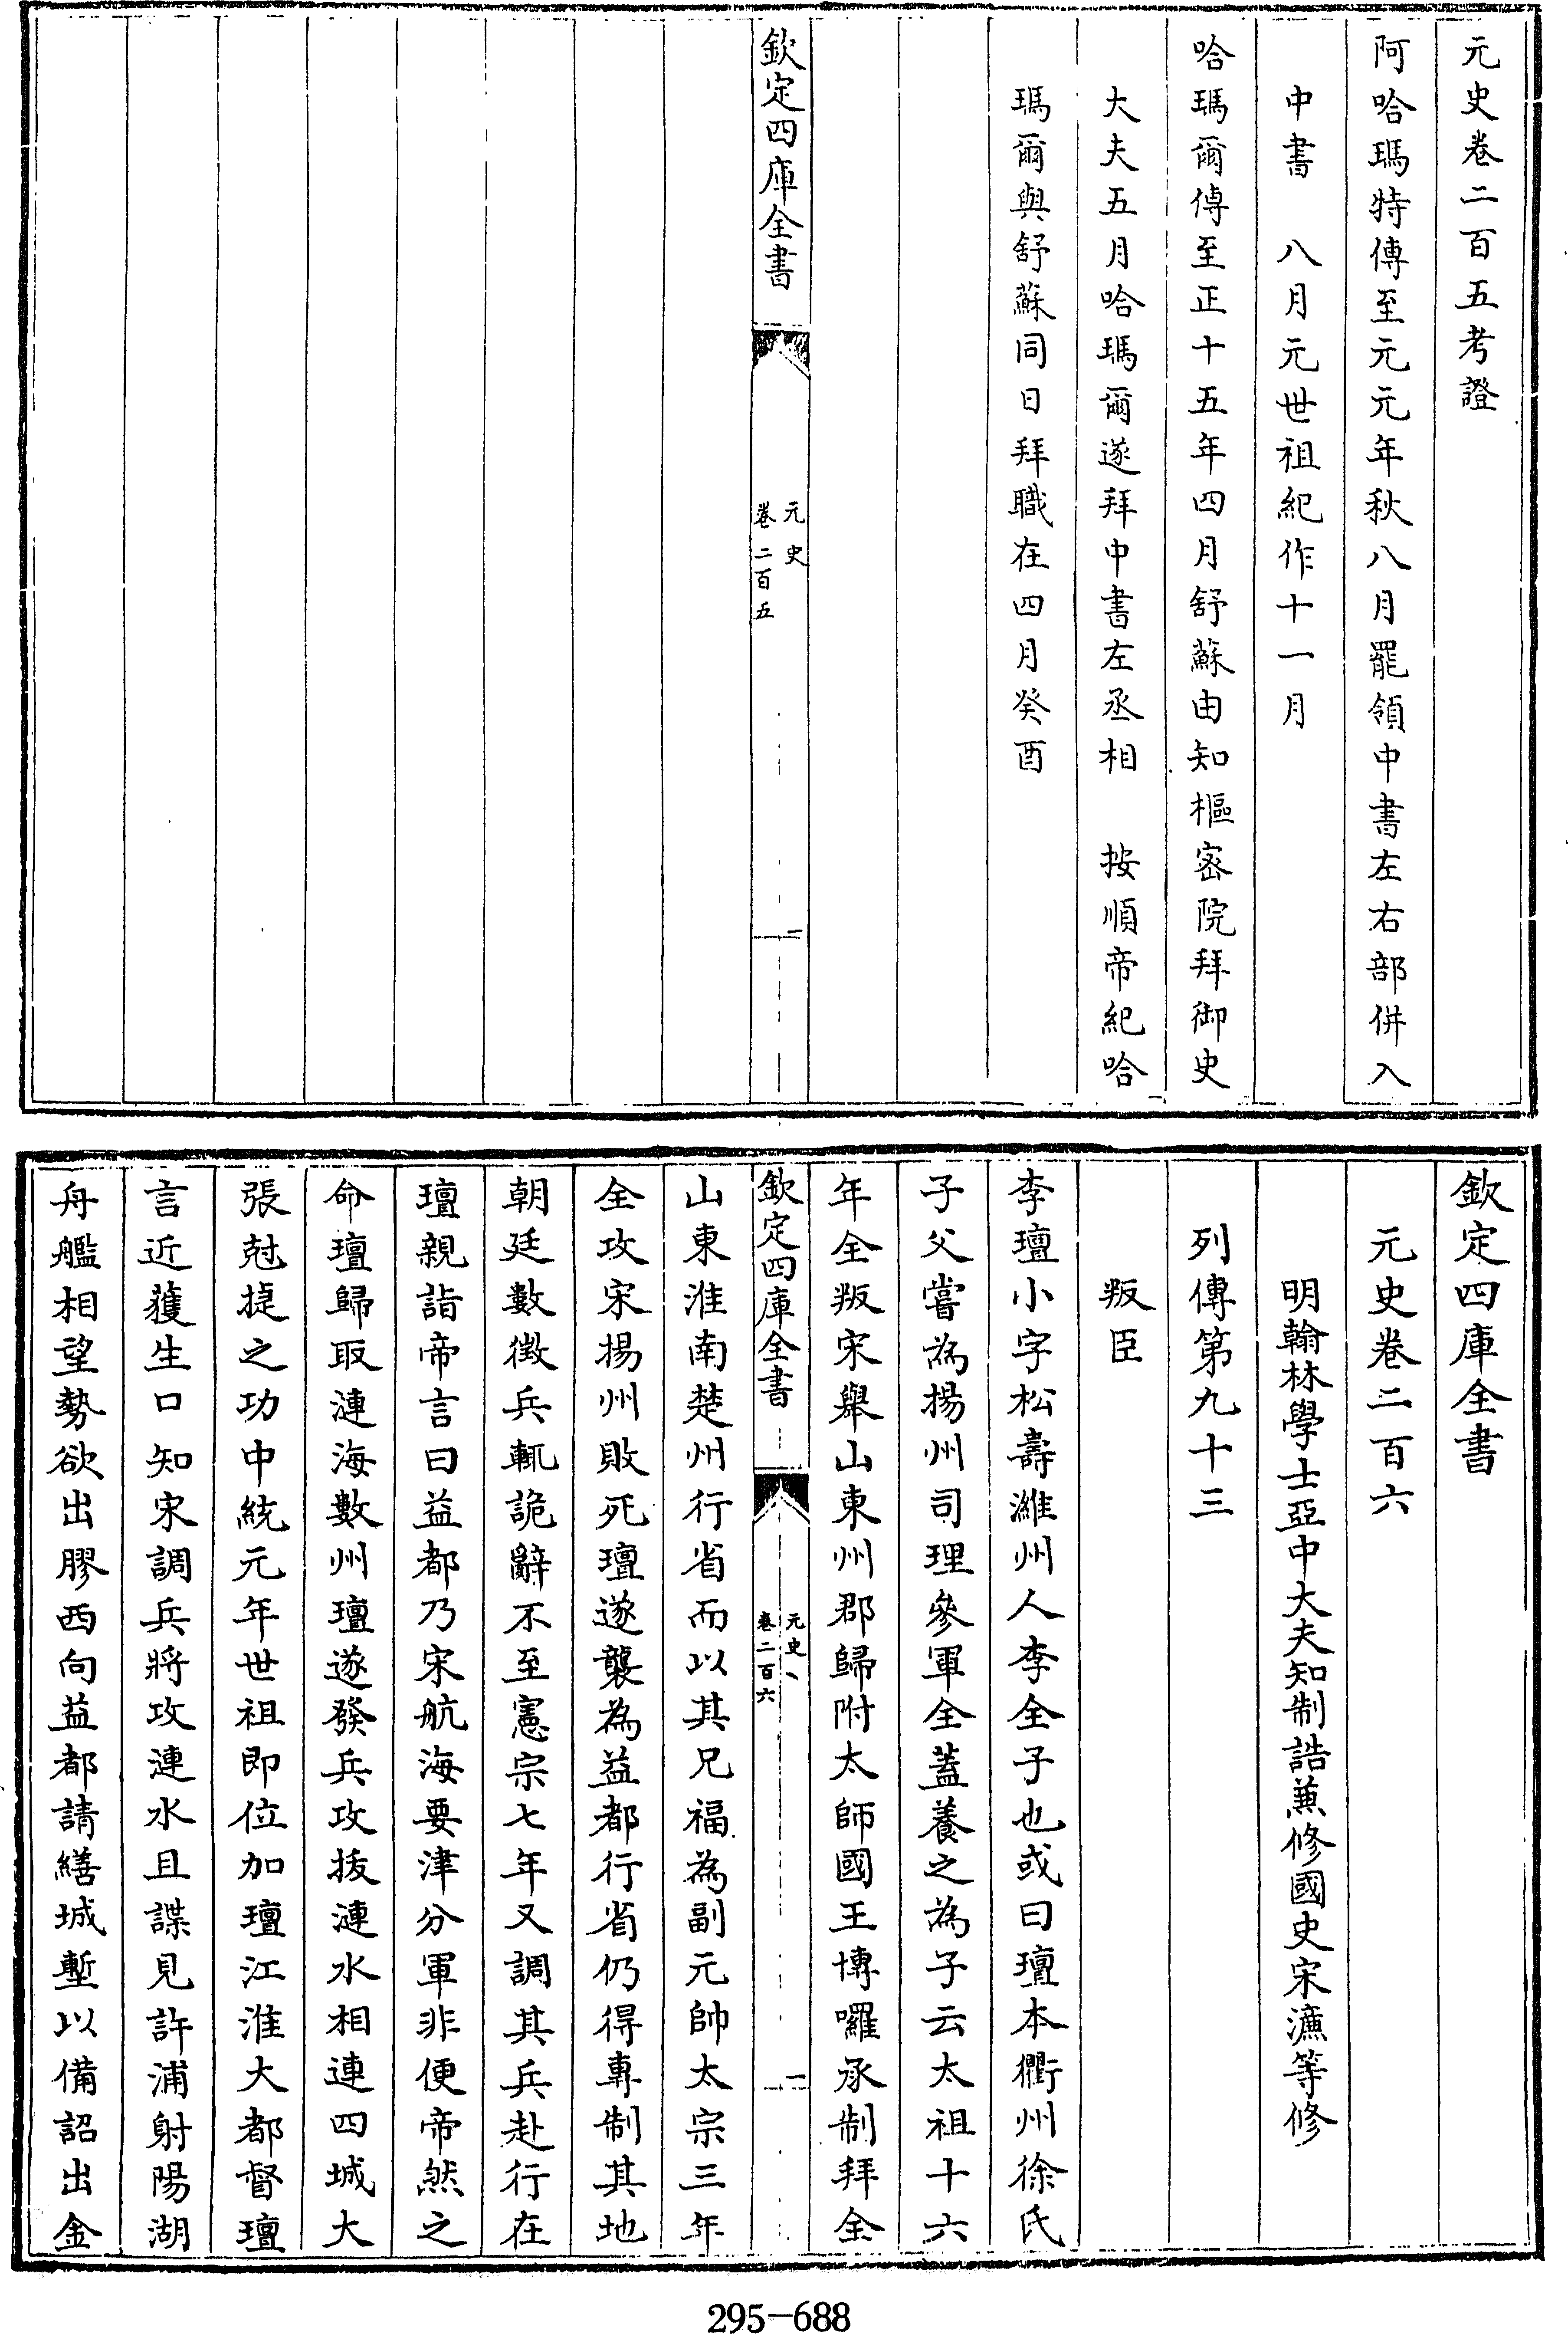 元史卷二百五考證
阿哈瑪特傳至元元年秋八月罷領中書左右部併入
中書　八月元世祖紀作十一月
哈瑪爾傳至正十五年四月舒蘇由知樞密院拜御史
大夫五月哈瑪爾遂拜中書左丞相　按順帝紀哈
瑪爾與舒蘇同日拜職在四月癸酉
欽定四庫全書
元史
卷二百五
一
欽定四庫全書
元史卷二百六
明翰林學士亞中大夫知制誥兼修國史宋濂等修
列傳第九十三
叛臣
李璮小字松壽濰州人李全子也或曰璮本衢州徐氏
子父嘗為揚州司理參軍全蓋養之為子云太祖十六
年全叛宋舉山東州郡歸附太師國王博囉承制拜全
欽定四庫全書
元史
卷二百六
一
山東淮南楚州行省而以其兄福為副元帥太宗三年
全攻宋揚州敗死璮遂襲為益都行省仍得專制其地
朝廷數徵兵輒詭辭不至憲宗七年又調其兵赴行在
璮親詣帝言曰益都乃宋航海要津分軍非便帝然之
命璮歸取漣海數州璮遂發兵攻拔漣水相連四城大
張尅捷之功中統元年世祖即位加璮江淮大都督璮
言近獲生口知宋調兵將攻漣水且諜見許浦射陽湖
舟艦相望勢欲出膠西向益都請繕城塹以備詔出金
295-688